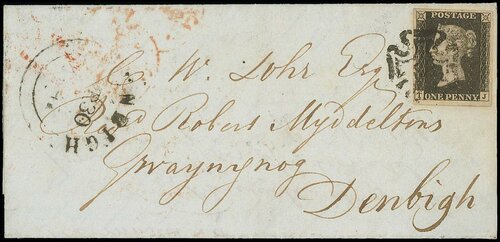 POSTAGE
ONE PENNY
J
C. W. Lohr Esqr
Robert Myddeltons
Gwaynynog
Denbigh
DENBIGH
30